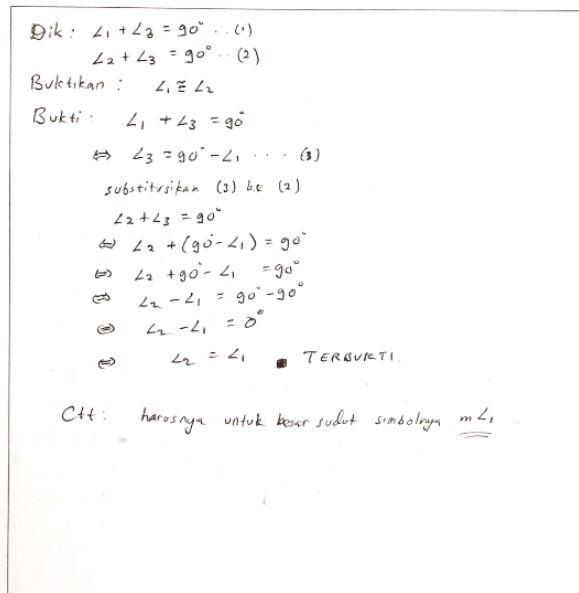 Dik : ∠1 + ∠3 = 90° ..(1)
∠2 + ∠3 = 90° ..(2)
Buktikan : ∠1 ≅ ∠2
Bukti : ∠1 + ∠3 = 90°
⇔ ∠3 = 90° - ∠1 .... (3)
substitusikan (3) ke (2)
∠2 + ∠3 = 90°
⇔ ∠2 + (90° - ∠1) = 90°
⇔ ∠2 + 90° - ∠1 = 90°
⇔ ∠2 - ∠1 = 90° - 90°
⇔ ∠2 - ∠1 = 0°
⇔ ∠2 = ∠1 ■ TERBUKTI.
Ctt : harusnya untuk besar sudut simbolnya m∠1